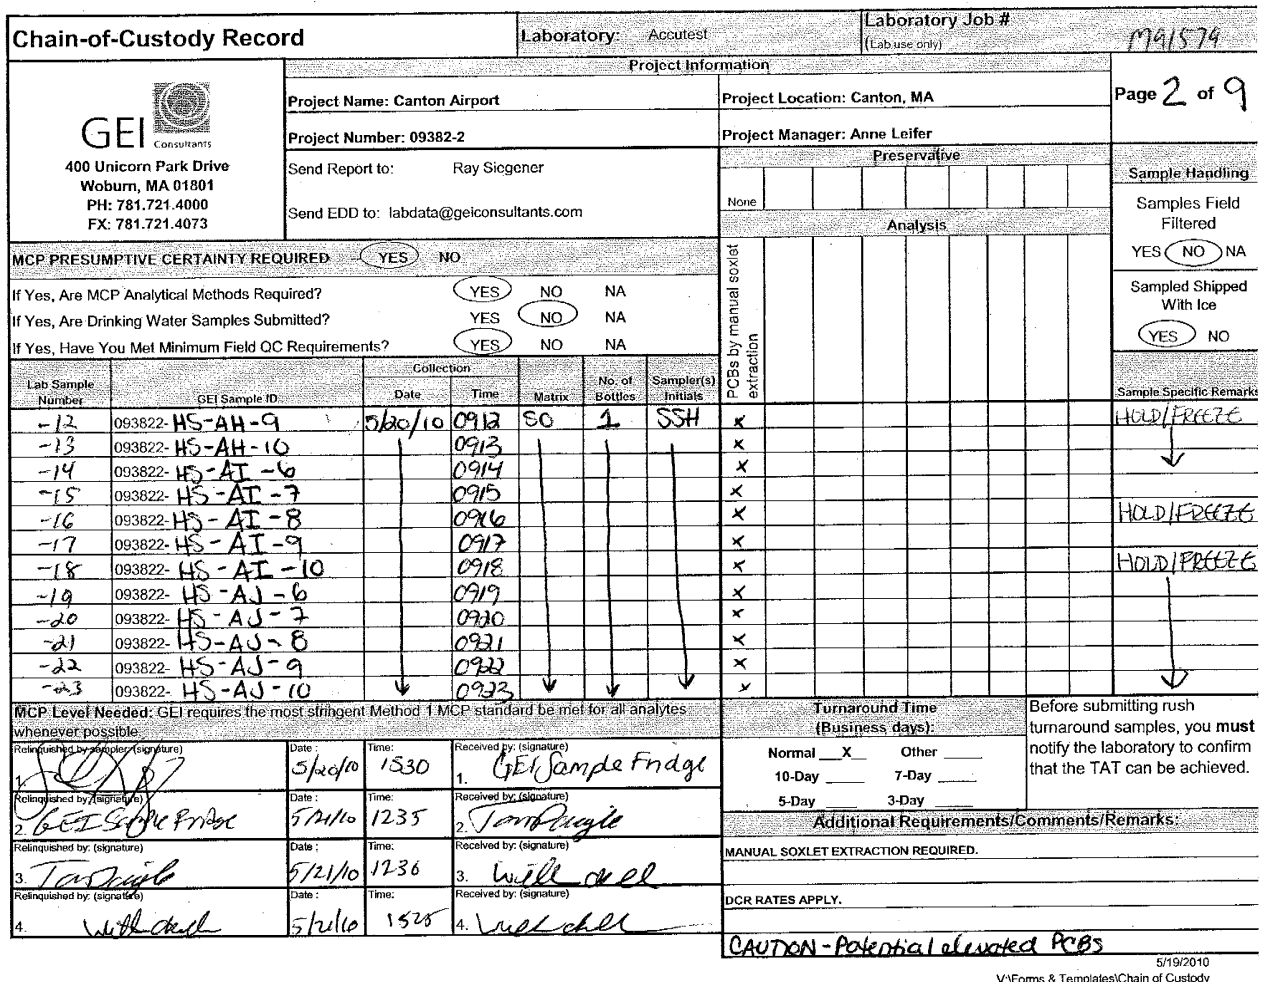 Chain-of-Custody Record
Laboratory: Accutest
Laboratory Job #
(Lab use only)
M91579
Project Information
GEI Consultants
400 Unicorn Park Drive
Woburn, MA 01801
PH: 781.721.4000
FX: 781.721.4073
Project Name: Canton Airport
Project Location: Canton, MA
Page 2 of 9
Project Number: 09382-2
Project Manager: Anne Leifer
Send Report to: Ray Siegener
Send EDD to: labdata@geiconsultants.com
Preservative
None
Analysis
PCBs by manual soxlet extraction
Sample Handling
Samples Field
Filtered
YES NO NA
Sampled Shipped
With Ice
YES NO
MCP PRESUMPTIVE CERTAINTY REQUIRED YES NO
If Yes, Are MCP Analytical Methods Required? YES NO NA
If Yes, Are Drinking Water Samples Submitted? YES NO NA
If Yes, Have You Met Minimum Field QC Requirements? YES NO NA
Lab Sample Number GEI Sample ID Collection Date Time Matrix No. of Bottles Sampler(s) Initials Sample Specific Remarks
-12 093822- HS-AH-9 5/20/10 0912 SO 1 SSH x HOLD/FREEZE
-13 093822- HS-AH-10 0913 x
-14 093822- HS-AI-6 0914 x
-15 093822- HS-AI-7 0915 x
-16 093822- HS-AI-8 0916 x HOLD/FREEZE
-17 093822- HS-AI-9 0917 x
-18 093822- HS-AI-10 0918 x HOLD/FREEZE
-19 093822- HS-AJ-6 0919 x
-20 093822- HS-AJ-7 0920 x
-21 093822- HS-AJ-8 0921 x
-22 093822- HS-AJ-9 0922 x
-23 093822- HS-AJ-10 0923 x
MCP Level Needed: GEI requires the most stringent Method 1 MCP standard be met for all analytes
whenever possible.
Relinquished by sampler: (signature) Date: Time: Received by: (signature)
1. 5/20/10 1530 1. GEI Sample Fridge
Relinquished by: (signature) Date: Time: Received by: (signature)
2. GEI Sample Fridge 5/21/10 1235 2.
Relinquished by: (signature) Date: Time: Received by: (signature)
3. 5/21/10 1236 3.
Relinquished by: (signature) Date: Time: Received by: (signature)
4. 5/21/10 1525 4.
Turnaround Time
(Business days):
Normal X Other
10-Day 7-Day
5-Day 3-Day
Before submitting rush
turnaround samples, you must
notify the laboratory to confirm
that the TAT can be achieved.
Additional Requirements/Comments/Remarks:
MANUAL SOXLET EXTRACTION REQUIRED.
DCR RATES APPLY.
CAUTION - Potential elevated PCBS
5/19/2010
V:\Forms & Templates\Chain of Custody